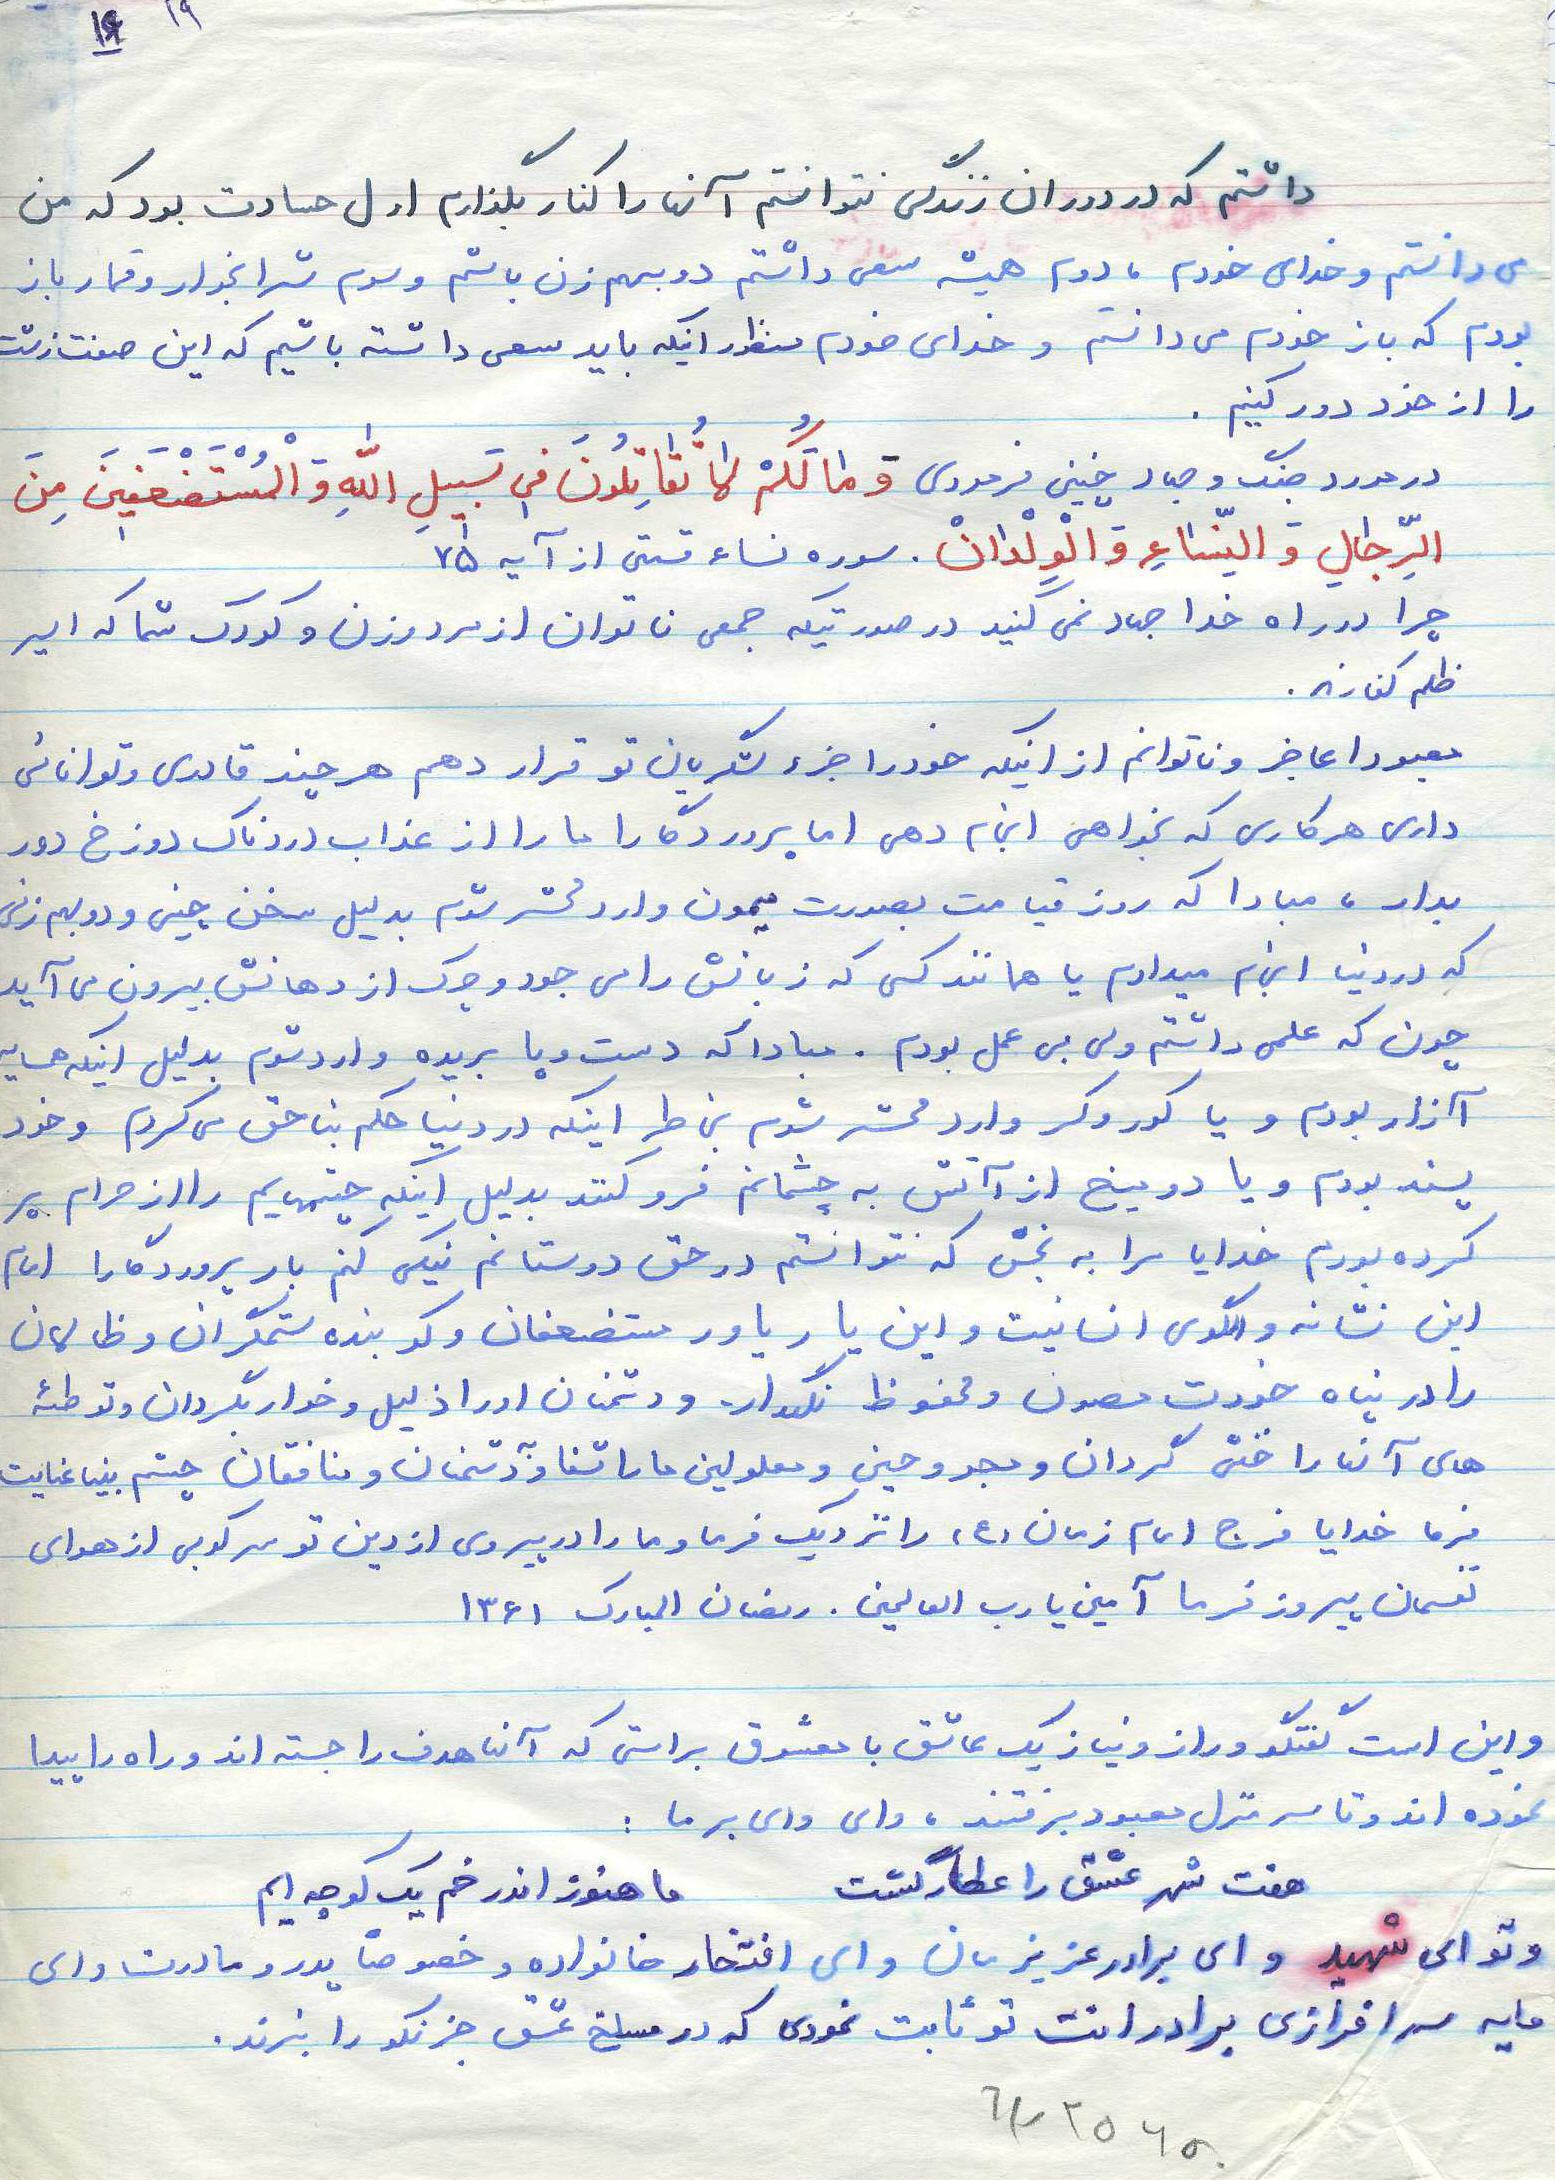 ۲۹ ۱۹
داشتم که در دوران زندگی نتوانستم آنها را کنار بگذارم اول حسادت بود که من
می دانستم و خدای خودم ، دوم همیشه سعی داشتم دو بهم زن باشم و سوم شرابخوار و قمار باز
بودم که باز خودم می دانستم و خدای خودم منظور اینکه باید سعی داشته باشیم که این صفت زشت
را از خود دور کنیم .
در مورد جنگ و جهاد چنین فرمودی وَ مٰا لَکُمْ لاٰ تُقٰاتِلُونَ فِی سَبِیلِ اللّٰهِ وَ الْمُسْتَضْعَفِینَ مِنَ
الرِّجٰالِ وَ النِّسٰاءِ وَ الْوِلْدٰانْ . سوره نساء قسمتی از آیه ۷۵
چرا در راه خدا جهاد نمی کنید در صورتیکه جمعی ناتوان از مرد و زن و کودک شما که اسیر
ظلم کفارند .
معبودا عاجز و ناتوانم از اینکه خود را جزء لشگریان تو قرار دهم هر چند قادری و توانائی
داری هر کاری که بخواهی انجام دهی اما پروردگارا ما را از عذاب دردناک دوزخ دور
بدار ، مبادا که روز قیامت بصورت میمون وارد محشر شوم بدلیل سخن چینی و دو بهم زنی
که در دنیا انجام میدادم یا همانند کسی که زبانش را می جود و چرک از دهانش بیرون می آید
چون که علمی داشتم ولی بی عمل بودم . مبادا که دست و پا بریده وارد شوم بدلیل اینکه همسایه
آزار بودم و یا کور و کر وارد محشر شوم بخاطر اینکه در دنیا حکم بناحق می کردم و خود
پسند بودم و یا دو میخ از آتش به چشمانم فرو کنند بدلیل اینکه چشمهایم را از حرام پر
کرده بودم خدایا مرا به بخش که نتوانستم در حق دوستانم نیکی کنم بار پروردگارا امام
این نشانه و الگوی انسانیت و این یار یاور مستضعفان و کوبنده ستمگران و ظالمان
را در پناه خودت مصون و محفوظ نگهدار و دشمنان او را ذلیل و خوار بگردان و توطئه
های آنها را خنثی گردان و مجروحین و معلولین ما را شفا و به دشمنان و منافقان چشم بینا عنایت
فرما خدایا فرج امام زمان (ع) را نزدیک فرما و ما را در پیروی از دین تو سرکوبی از هوای
نفسمان پیروز فرما آمین یا رب العالمین . رمضان المبارک ۱۳۶۱
و این است گفتگو و راز و نیاز یک عاشق با معشوق براستی که آنها هدف را جسته اند و راه را پیدا
نموده اند و تا سر منزل معبود برفتند ، وای وای بر ما :
هفت شهر عشق را عطار گشت ما هنوز اندر خم یک کوچه ایم
و تو ای شهید و ای برادر عزیزمان و ای افتخار خانواده و خصوصاً پدر و مادرت و ای
مایه سرافرازی برادرانت تو ثابت نمودی که در مسلخ عشق جز نکو را نبرند .